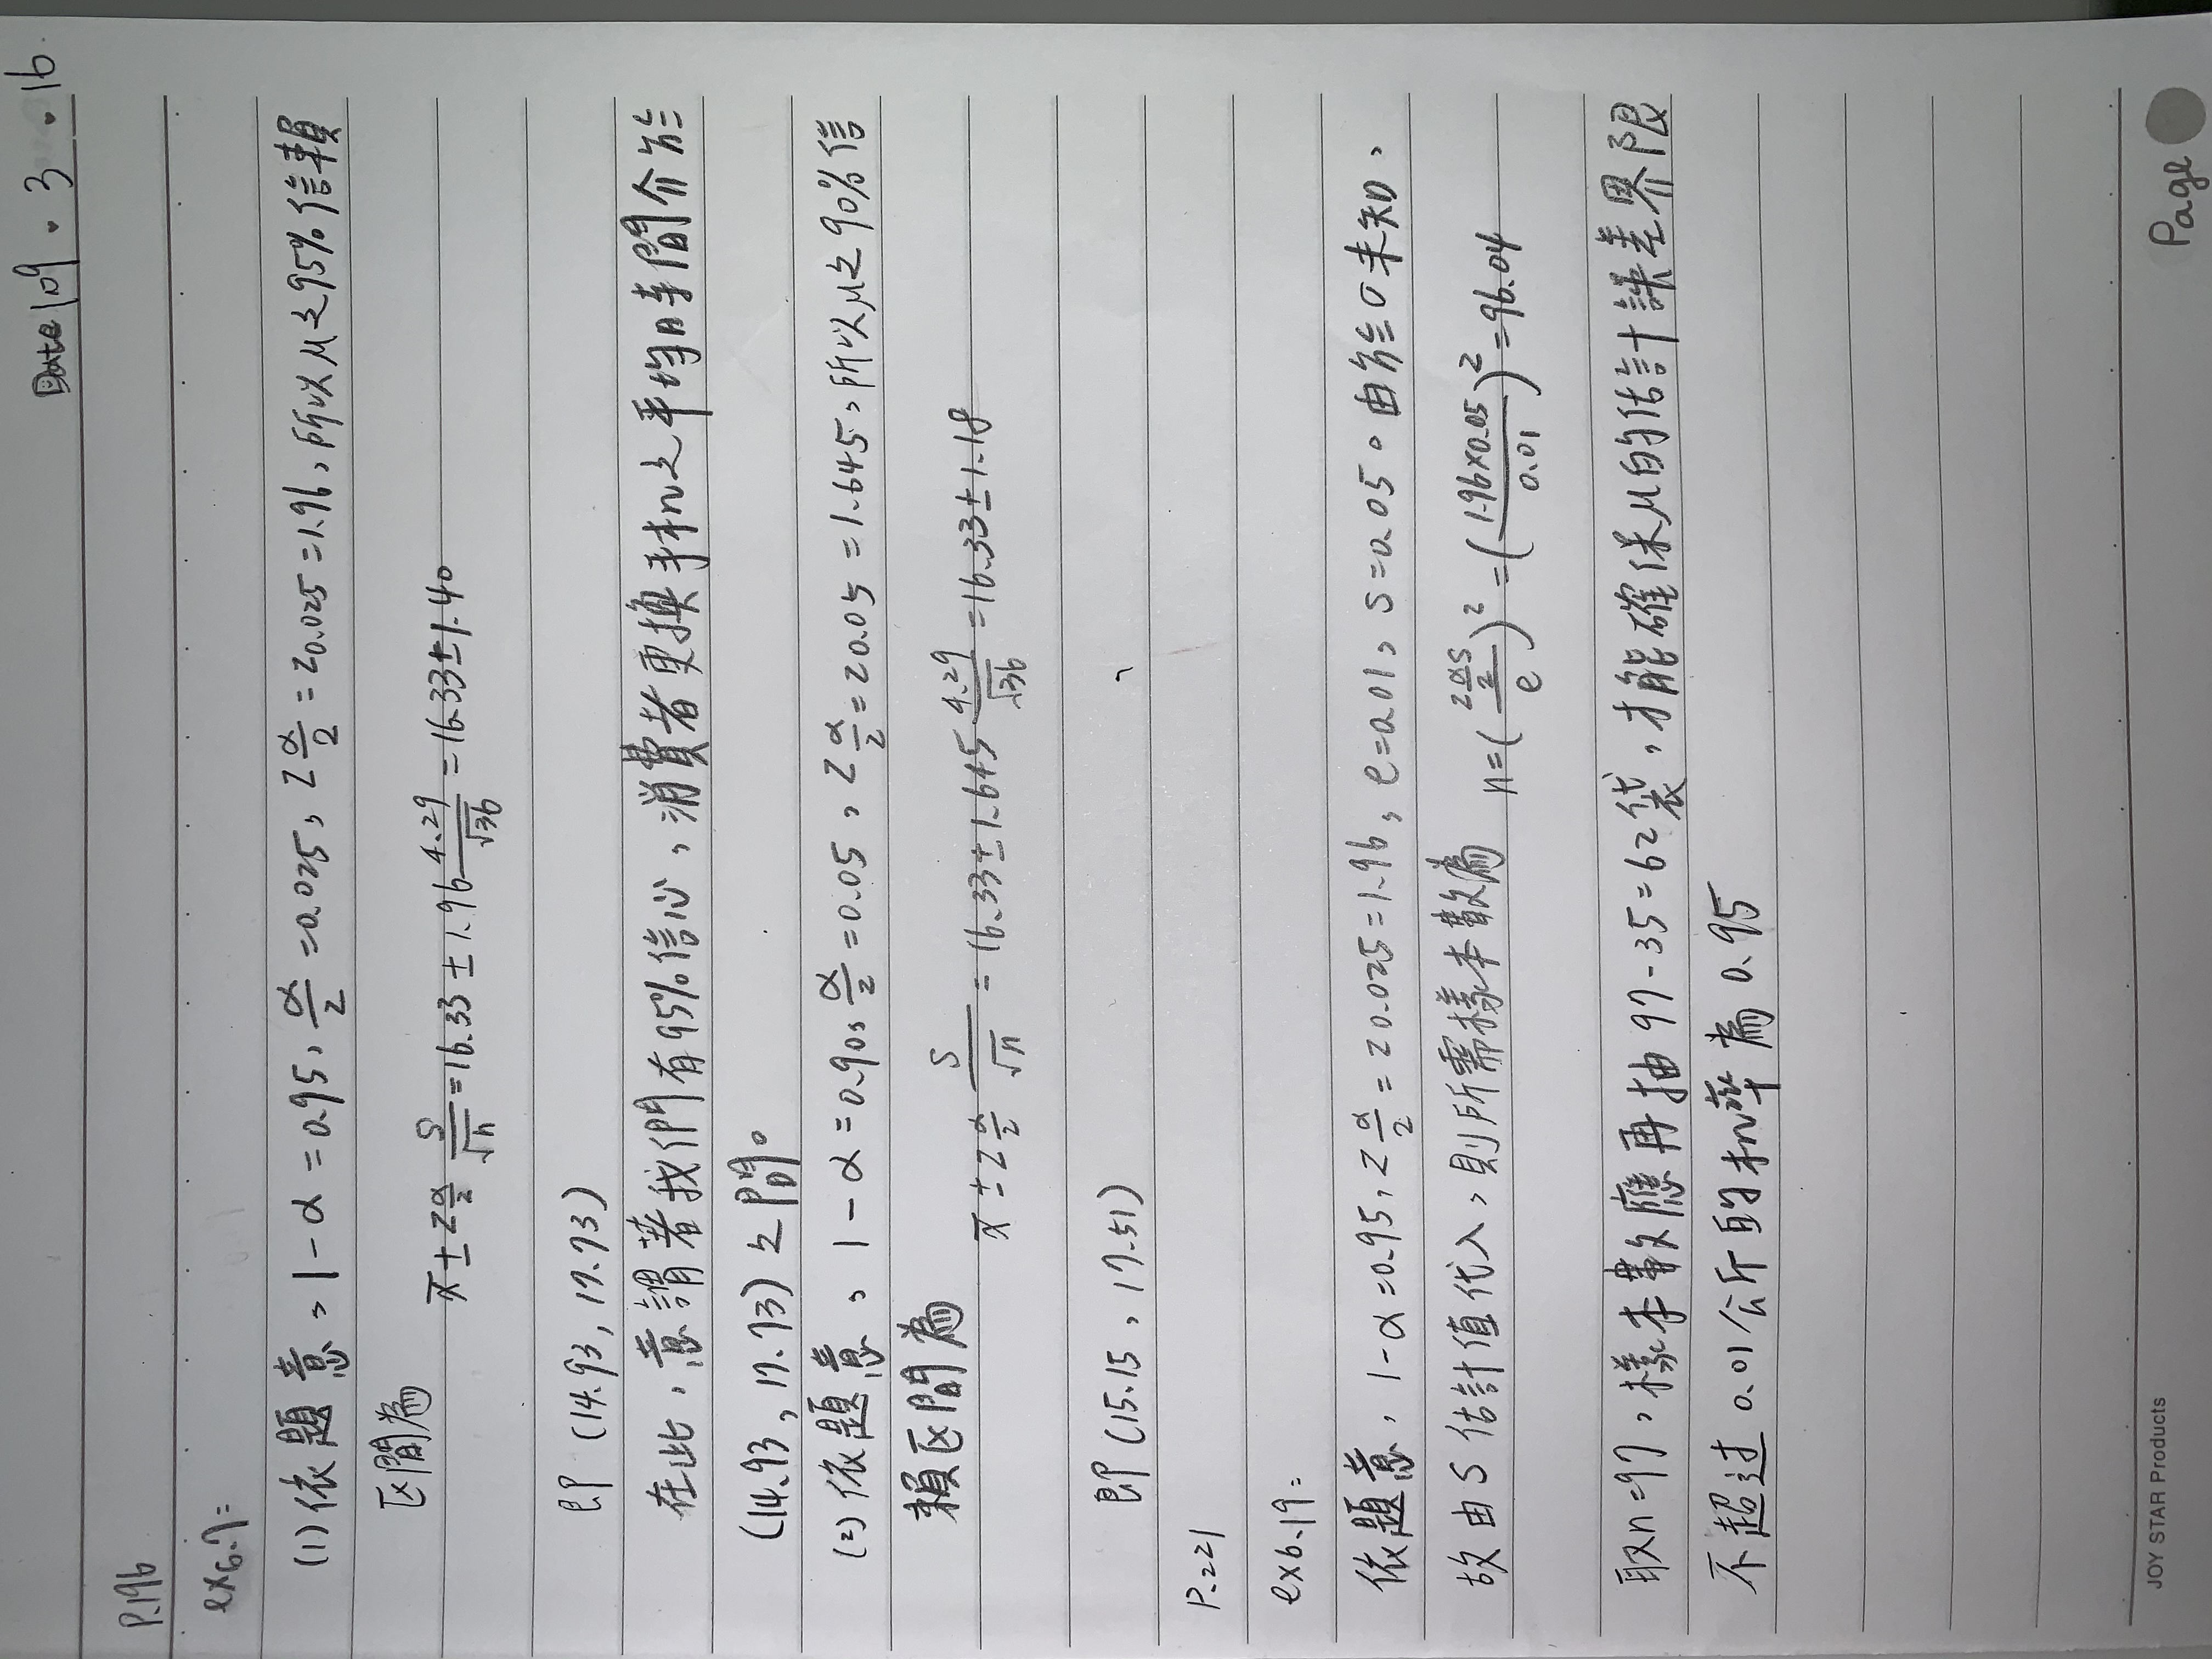 Date 109 . 3 . 16
P.196
ex6.7=
(1)依題意,1-α=0.95,α/2=0.025,Zα/2=Z0.025=1.96,所以μ之95%信賴
区間為
x̄±Zα/2 S/√n=16.33±1.96 4.29/√36=16.33±1.40
即(14.93,17.73)
在此,意謂著我們有95%信心,消費者更換手机之平均時間介於
(14.93,17.73)之間。
(2)依題意,1-α=0.90,α/2=0.05,Zα/2=Z0.05=1.645,所以μ之90%信
賴区間為
x̄±Zα/2 S/√n=16.33±1.645 4.29/√36=16.33±1.18
即(15.15,17.51)
P.221
ex6.19=
依題意,1-α=0.95,Zα/2=Z0.025=1.96,e=0.01,S=0.05。由於σ未知,
故由S估計值代入,則所需樣本數為 n=(Zα/2S/e)²=(1.96×0.05/0.01)²=96.04
取n=97,樣本數應再抽97-35=62袋,才能確保μ的估計誤差界限
不超过0.01公斤的机率為0.95
JOY STAR Products
Page